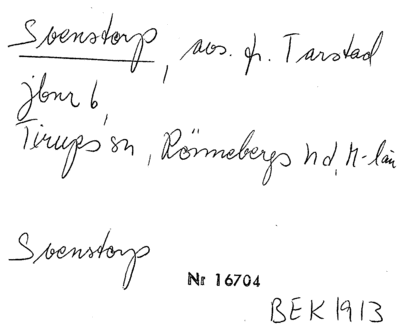 Svenstorp, avs. fr. Tarstad
jbnr 6,
Tirups sn, Rönnebergs hd, M-län
Svenstorp
Nr 16704
BEK 1913